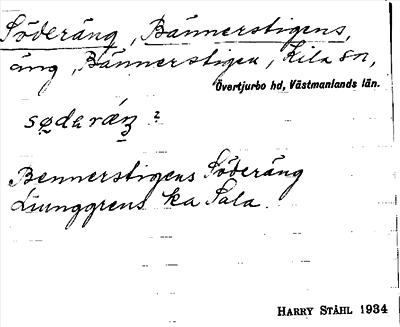 Söderäng, Bännerstigens,
äng, Bännerstigen, Kila sn,
Övertjurbo hd, Västmanlands län.
Bennerstigens Söderäng
Ljunggrens ka Sala.
HARRY STÅHL 1934